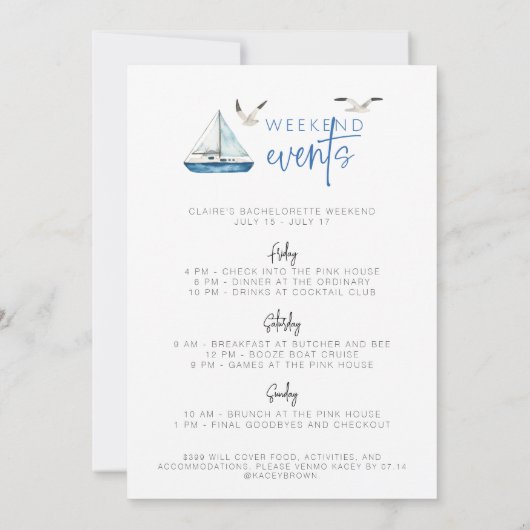 WEEKEND
events
CLAIRE'S BACHELORETTE WEEKEND
JULY 15 - JULY 17
Friday
4 PM - CHECK INTO THE PINK HOUSE
6 PM - DINNER AT THE ORDINARY
10 PM - DRINKS AT COCKTAIL CLUB
Saturday
9 AM - BREAKFAST AT BUTCHER AND BEE
12 PM - BOOZE BOAT CRUISE
9 PM - GAMES AT THE PINK HOUSE
Sunday
10 AM - BRUNCH AT THE PINK HOUSE
1 PM - FINAL GOODBYES AND CHECKOUT
$399 WILL COVER FOOD, ACTIVITIES, AND
ACCOMMODATIONS. PLEASE VENMO KACEY BY 07.14
@KACEYBROWN